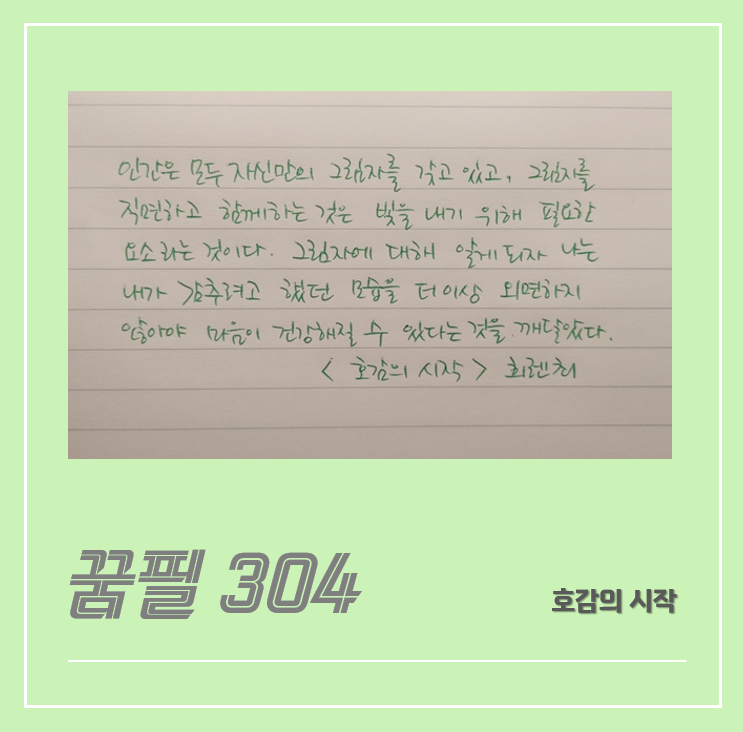 인간은 모두 자신만의 그림자를 갖고 있고, 그림자를
직면하고 함께하는 것은 빛을 내기 위해 필요한
요소라는 것이다. 그림자에 대해 알게 되자 나는
내가 감추려고 했던 모습을 더 이상 외면하지
않아야 마음이 건강해질 수 있다는 것을 깨달았다.
< 호감의 시작 > 희렌최
꿈필 304
호감의 시작